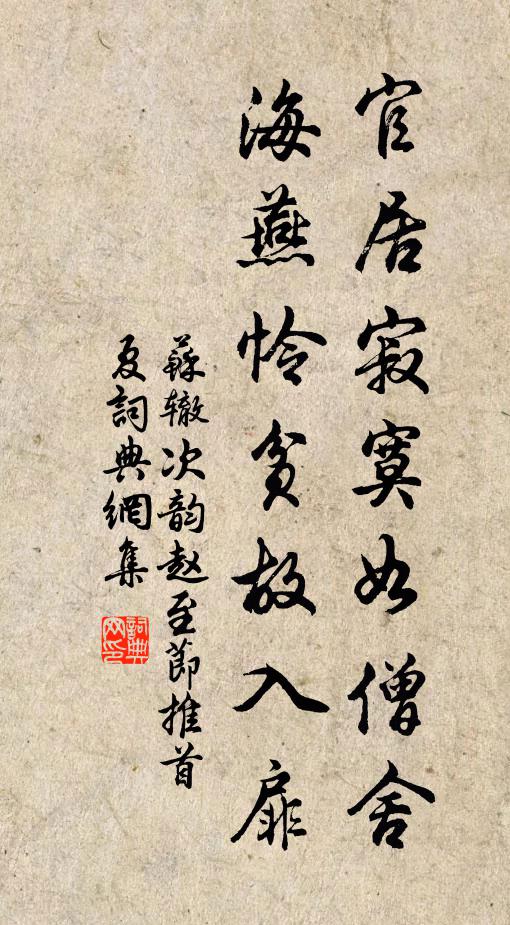 官居寂寞如僧舍
海燕怜貧故入扉
蘇辙次韵赵至節推首
夏詞典網集
詞典
网印